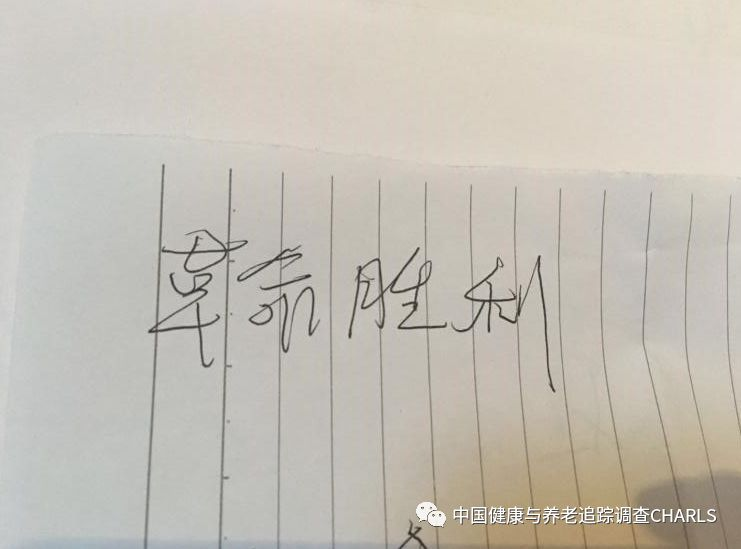 革命胜利
中国健康与养老追踪调查CHARLS